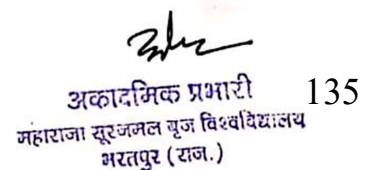 अकादमिक प्रभारी 135
महाराजा सूरजमल बृज विश्वविद्यालय
भरतपुर (राज.)